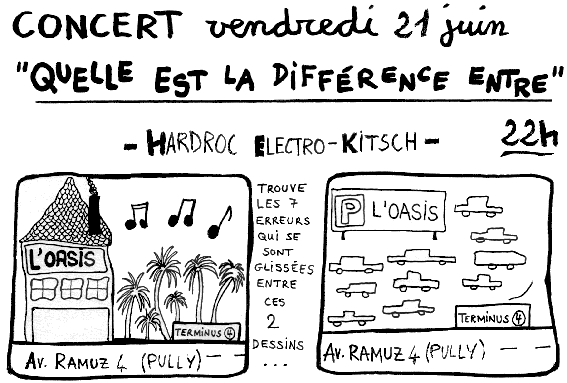 CONCERT vendredi 21 juin
"QUELLE EST LA DIFFÉRENCE ENTRE"
- HARDROC ELECTRO-KITSCH -
22h
L'OASIS
TERMINUS 4
AV. RAMUZ 4 (PULLY)
TROUVE
LES 7
ERREURS
QUI SE
SONT
GLISSÉES
ENTRE
CES
2
DESSINS
...
P L'OASIS
TERMINUS 4
AV. RAMUZ 4 (PULLY)